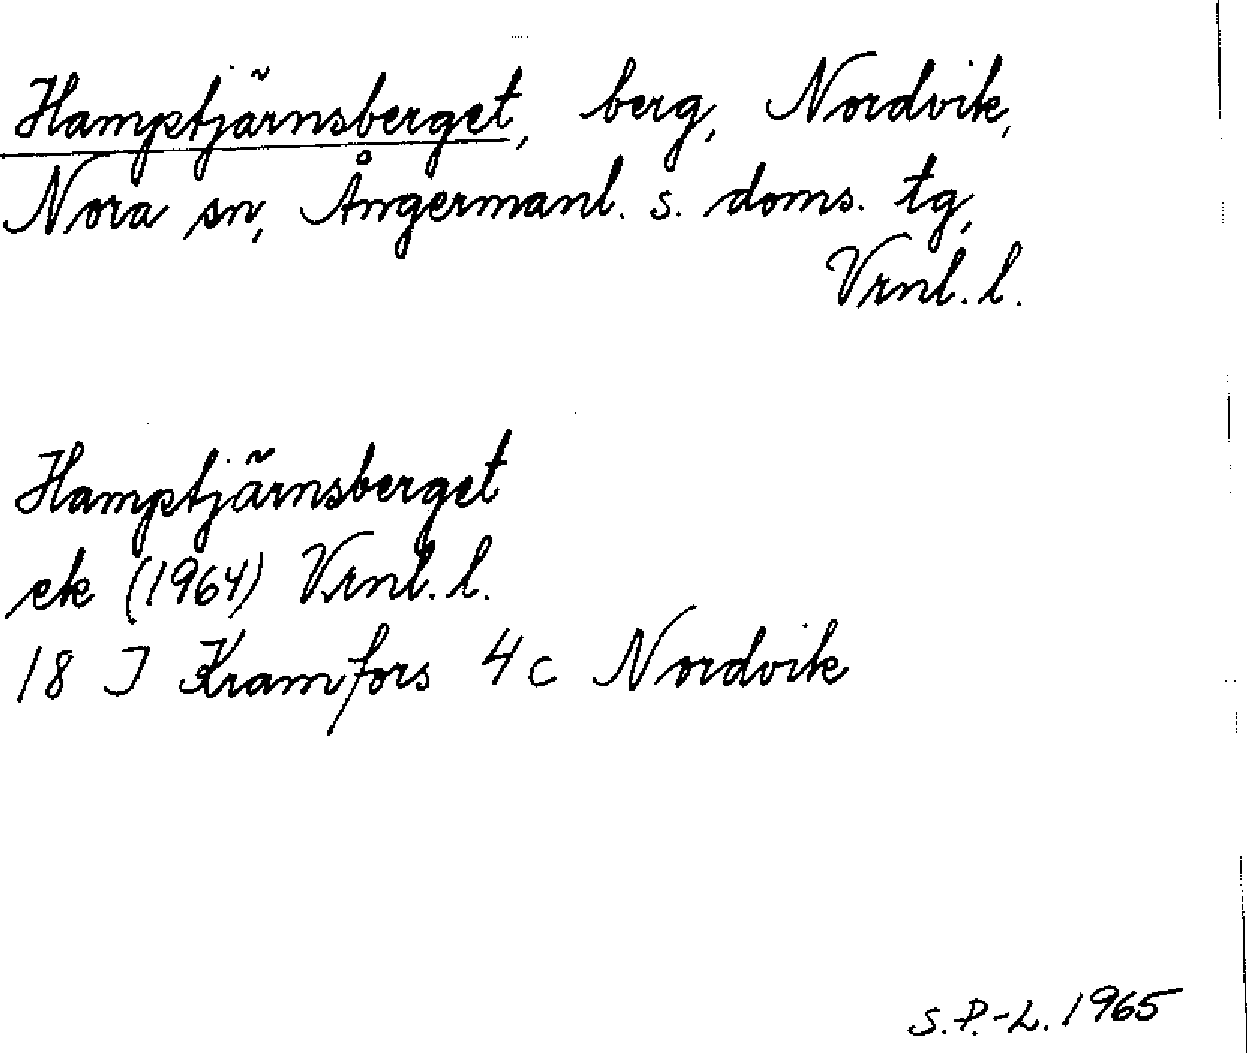 Hamptjärnsberget, berg, Nordvik,
Nora sn, Ångermanl. s. doms. tg,
Vrnl. l.
Hamptjärnsberget
ek (1964) Vrnl. l.
18 J Kramfors 4 c Nordvik
S.P.-L. 1965